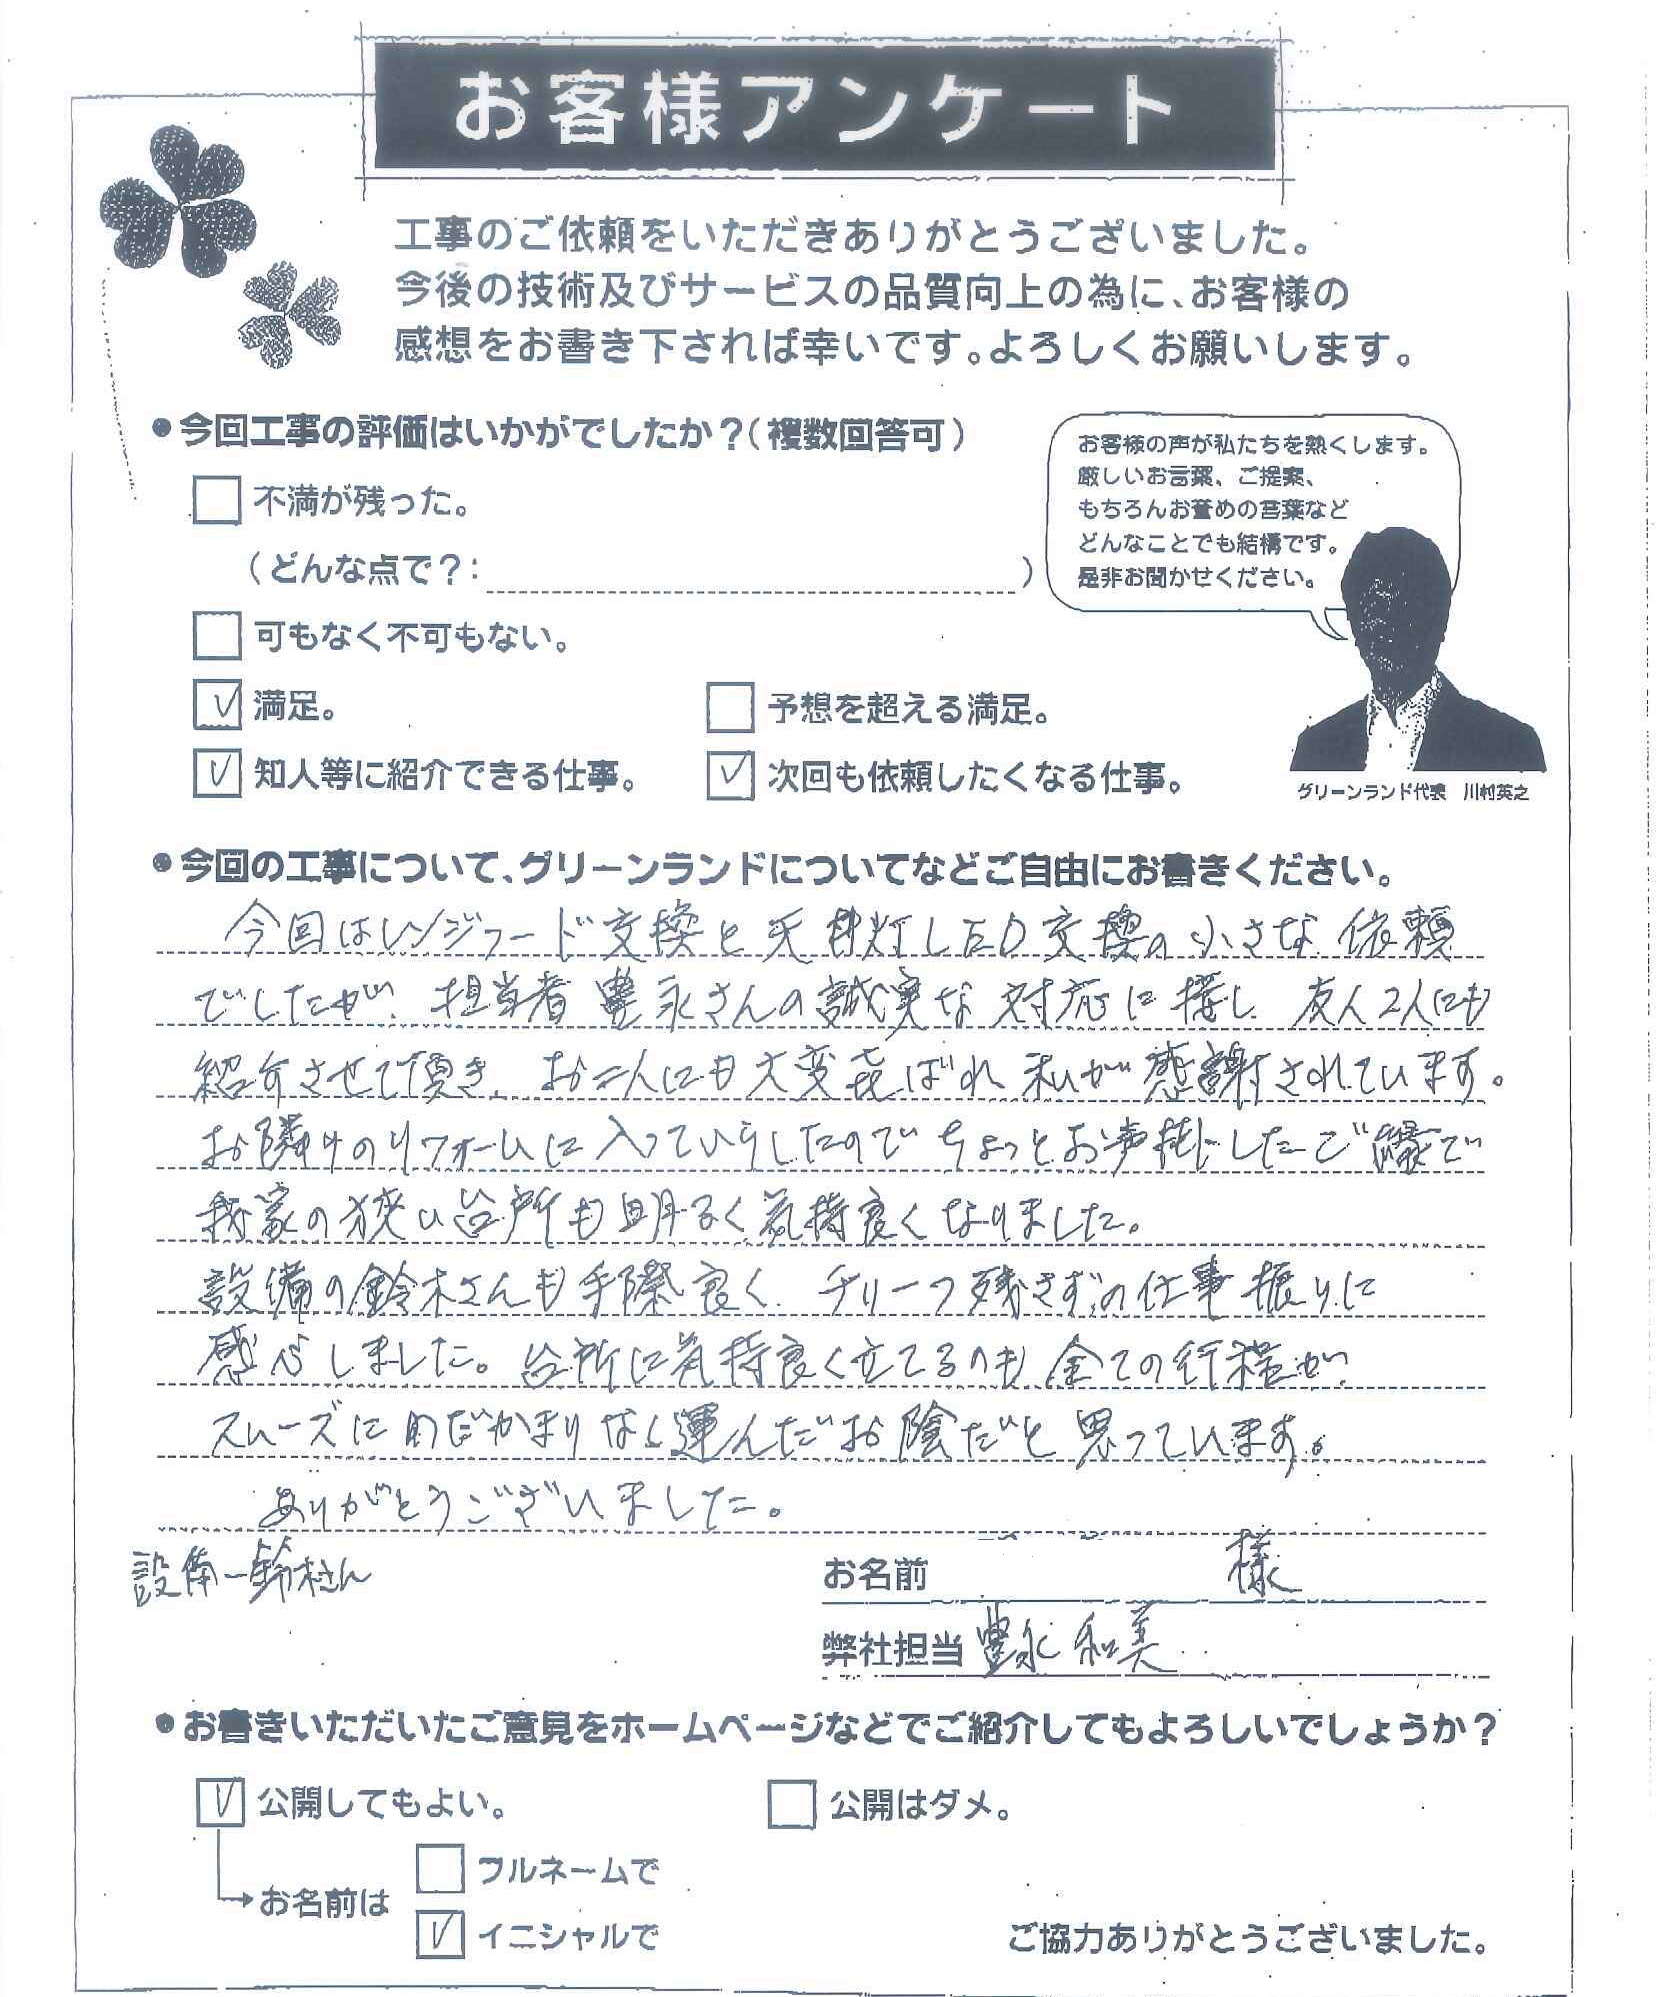 お客様アンケート
工事のご依頼をいただきありがとうございました。
今後の技術及びサービスの品質向上の為に、お客様の
感想をお書き下されば幸いです。よろしくお願いします。
●今回工事の評価はいかがでしたか？(複数回答可)
不満が残った。
(どんな点で？: )
可もなく不可もない。
満足。
予想を超える満足。
知人等に紹介できる仕事。
次回も依頼したくなる仕事。
お客様の声が私たちを熱くします。
厳しいお言葉、ご提案、
もちろんお誉めの言葉など
どんなことでも結構です。
是非お聞かせください。
グリーンランド代表 川村英之
●今回の工事について、グリーンランドについてなどご自由にお書きください。
今回はレンジフード交換と天井灯LED交換の小さな依頼
でしたが、担当者豊永さんの誠実な対応に接し 友人2人にも
紹介させて頂き、お二人にも大変喜ばれ 私が感謝されています。
お隣りのリフォームに入っていらしたので ちょっとお声掛けしたご縁で
我家の狭い台所も明るく気持良くなりました。
設備の鈴木さんも手際良く、チリ一つ残さずの仕事振りに
感心しました。台所に気持良く立てるのも 全ての行程が
スムーズに わだかまりなく運んだお陰だと思っています。
ありがとうございました。
設備ー鈴木さん
お名前 様
弊社担当 豊永 和美
●お書きいただいたご意見をホームページなどでご紹介してもよろしいでしょうか？
公開してもよい。
公開はダメ。
お名前は
フルネームで
イニシャルで
ご協力ありがとうございました。